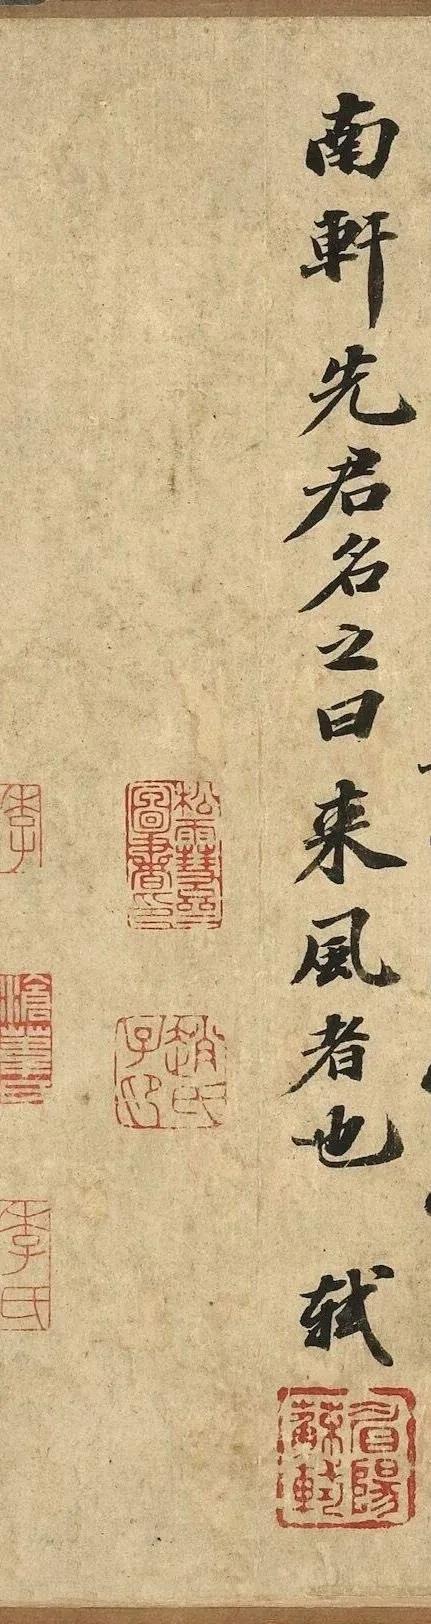 南軒先君名之曰来風者也　軾
眉陽蘇軾
松雪齋圖書印
趙氏子昂
李
李氏